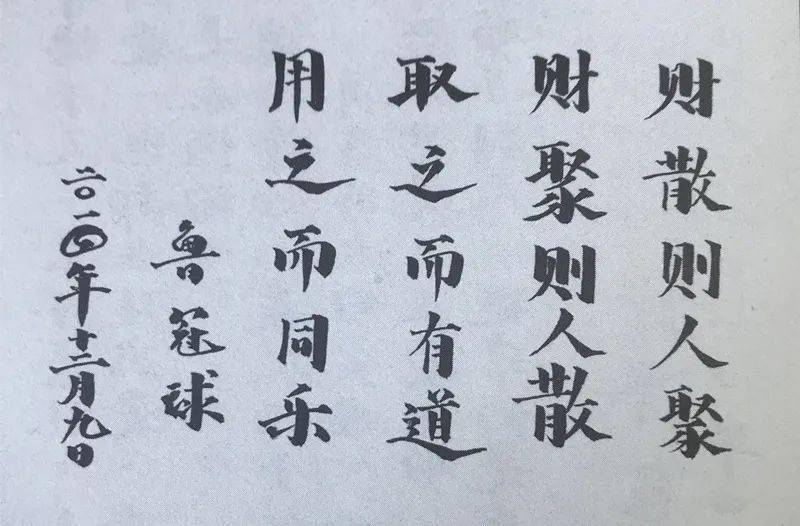 财散则人聚
财聚则人散
取之而有道
用之而同乐
鲁冠球
二〇一四年十二月九日